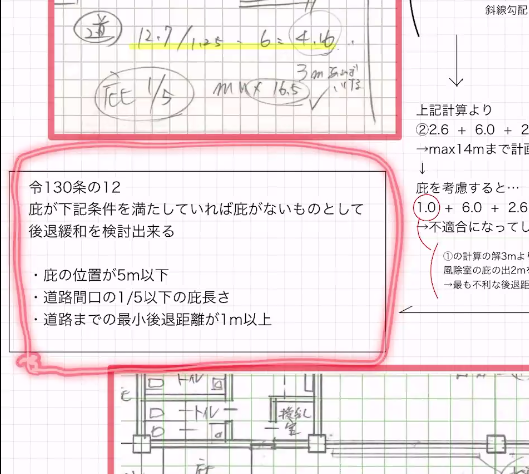 斜線勾配
道 12.7/1.25 - 6 = 4.16
3m
庇 1/5 max 16.5
上記計算より
②2.6 + 6.0 + 2
→max14mまで計画
↓
庇を考慮すると…
1.0 + 6.0 + 2.6
→不適合になってし
①の計算の解3mより
風除室の庇の出2mを
→最も不利な後退距
令130条の12
庇が下記条件を満たしていれば庇がないものとして
後退緩和を検討出来る
・庇の位置が5m以下
・道路間口の1/5以下の庇長さ
・道路までの最小後退距離が1m以上
トイレ
トイレ
室
庇